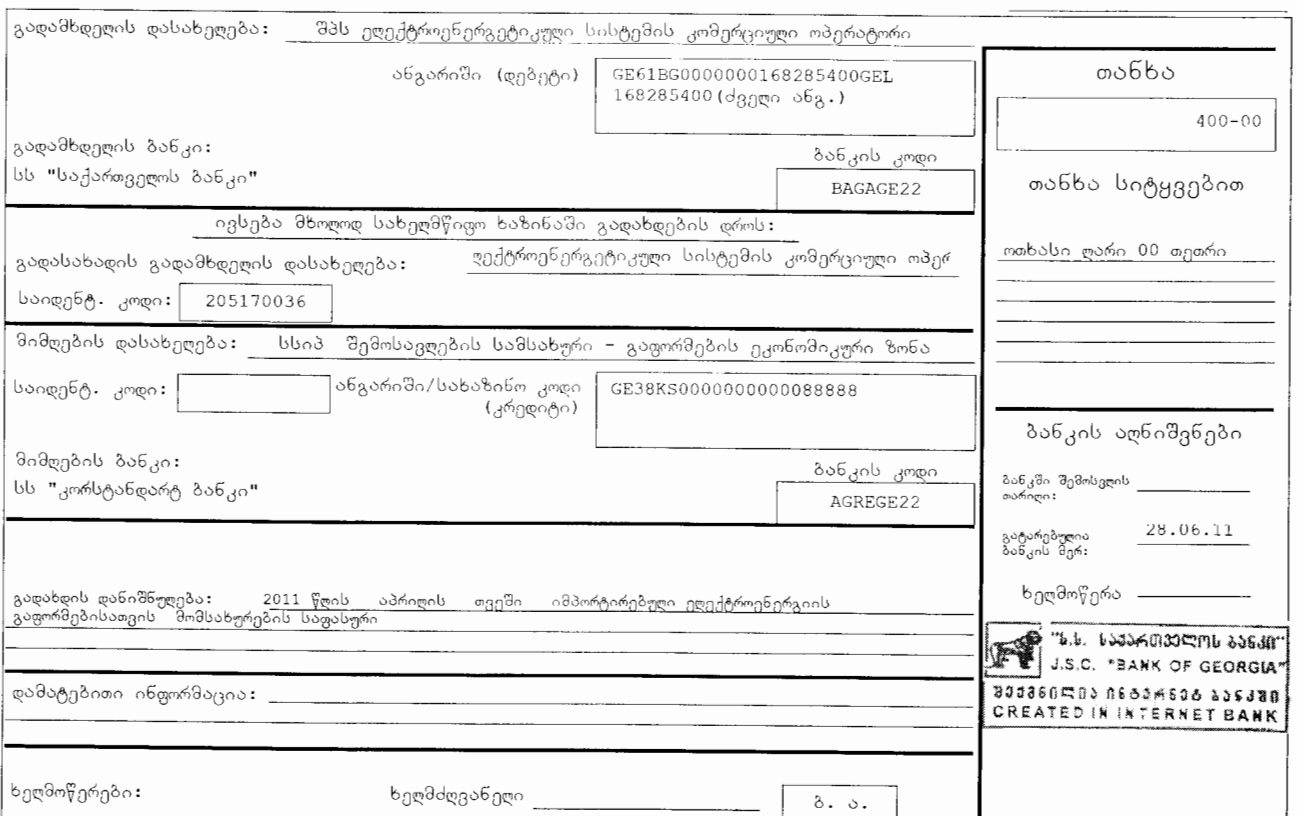 გადამხდელის დასახელება: შპს ელექტროენერგეტიკული სისტემის კომერციული ოპერატორი
ანგარიში (დებეტი) GE61BG0000000168285400GEL
168285400(ძველი ანგ.)
გადამხდელის ბანკი:
სს "საქართველოს ბანკი"
ბანკის კოდი
BAGAGE22
ივსება მხოლოდ სახელმწიფო ხაზინაში გადახდების დროს:
გადასახადის გადამხდელის დასახელება: ლექტროენერგეტიკული სისტემის კომერციული ოპერ
საიდენტ. კოდი: 205170036
მიმღების დასახელება: სსიპ შემოსავლების სამსახური - გაფორმების ეკონომიკური ზონა
საიდენტ. კოდი:
ანგარიში/სახაზინო კოდი
(კრედიტი)
GE38KS0000000000088888
მიმღების ბანკი:
სს "კორსტანდარტ ბანკი"
ბანკის კოდი
AGREGE22
გადახდის დანიშნულება: 2011 წლის აპრილის თვეში იმპორტირებული ელექტროენერგიის
გაფორმებისათვის მომსახურების საფასური
დამატებითი ინფორმაცია:
ხელმოწერები: ხელმძღვანელი
ბ. ა.
თანხა
400-00
თანხა სიტყვებით
ოთხასი ლარი 00 თეთრი
ბანკის აღნიშვნები
ბანკში შემოსვლის
თარიღი:
გატარებულია
ბანკის მერ:
28.06.11
ხელმოწერა
"ს.ს. საქართველოს ბანკი"
J.S.C. "BANK OF GEORGIA"
შექმნილია ინტერნეტ ბანკში
CREATED IN INTERNET BANK